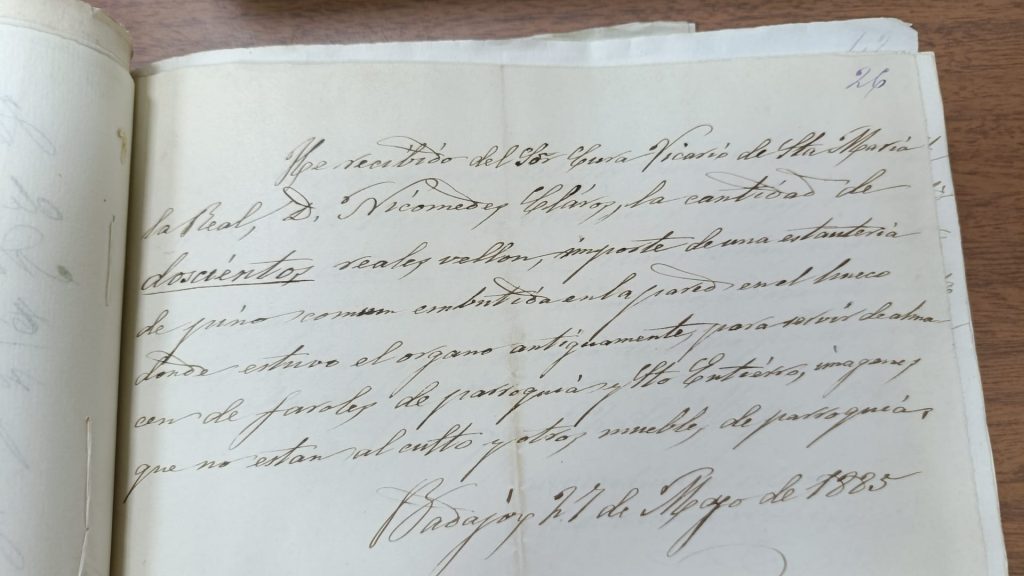 26
He recibido del Sor Cura Vicario de Sta Maria
la Real, D. Nicomedes Claros, la cantidad de
doscientos reales vellon, importe de una estanteria
de pino comun embutida en la pared en el hueco
donde estuvo el organo antiguamente, para servir de alma
cen de faroles de parroquia y Sto Entierro, imagenes
que no estan al culto y otros muebles de parroquia.
Badajoz 27 de Mayo de 1885